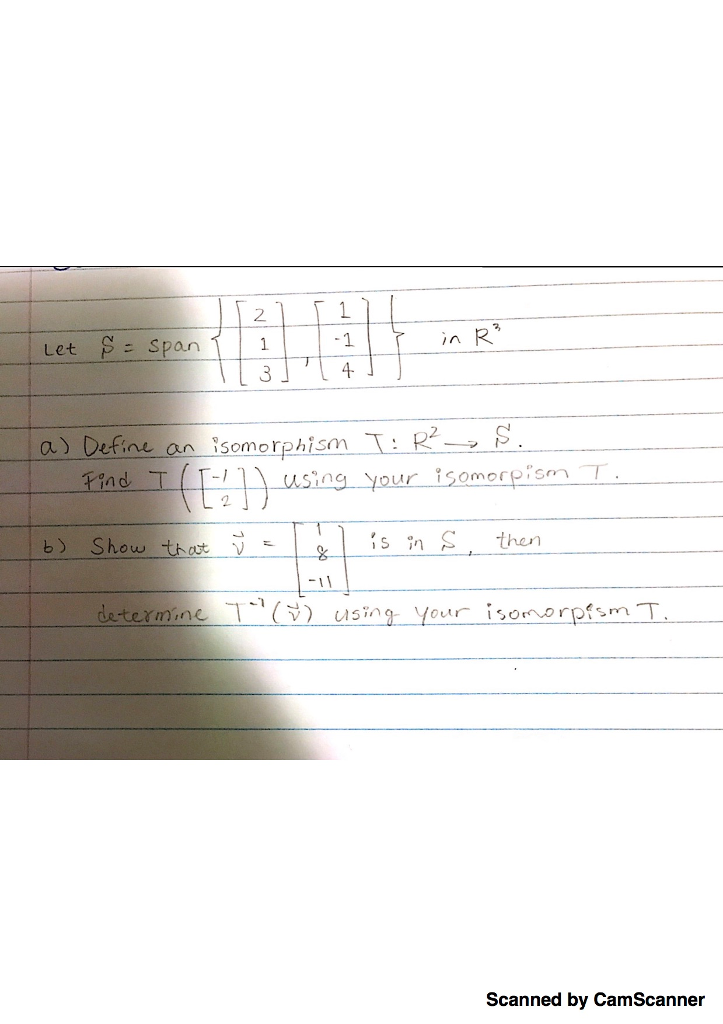 Let S = span { [2 1 3], [1 -1 4] } in R³
a) Define an isomorphism T: R² → S.
Find T ([-1 2]) using your isomorpism T.
b) Show that v⃗ = [1 8 -11] is in S, then
determine T⁻¹(v⃗) using your isomorpism T.
Scanned by CamScanner